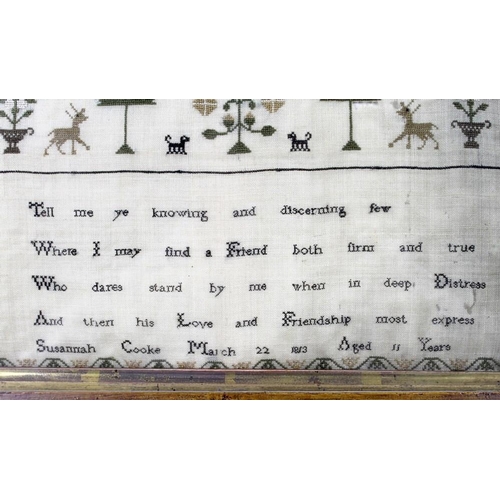 Tell me ye knowing and discerning few
Where I may find a Friend both firm and true
Who dares stand by me when in deep Distress
And then his Love and Friendship most express
Susannah Cooke March 22 1813 Aged 11 Years